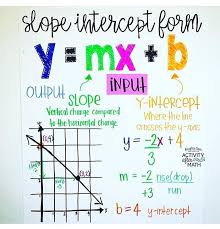 slope intercept form
y = mx + b
INPUT
OUTPUT
SLOPE
Vertical change compared
to the horizontal change
Y-intercept
Where the line
crosses the y-axis
y = -2x + 4
3
m = -2 rise(drop)
+3 run
b = 4 y-intercept
ACTIVITY
AFTER MATH